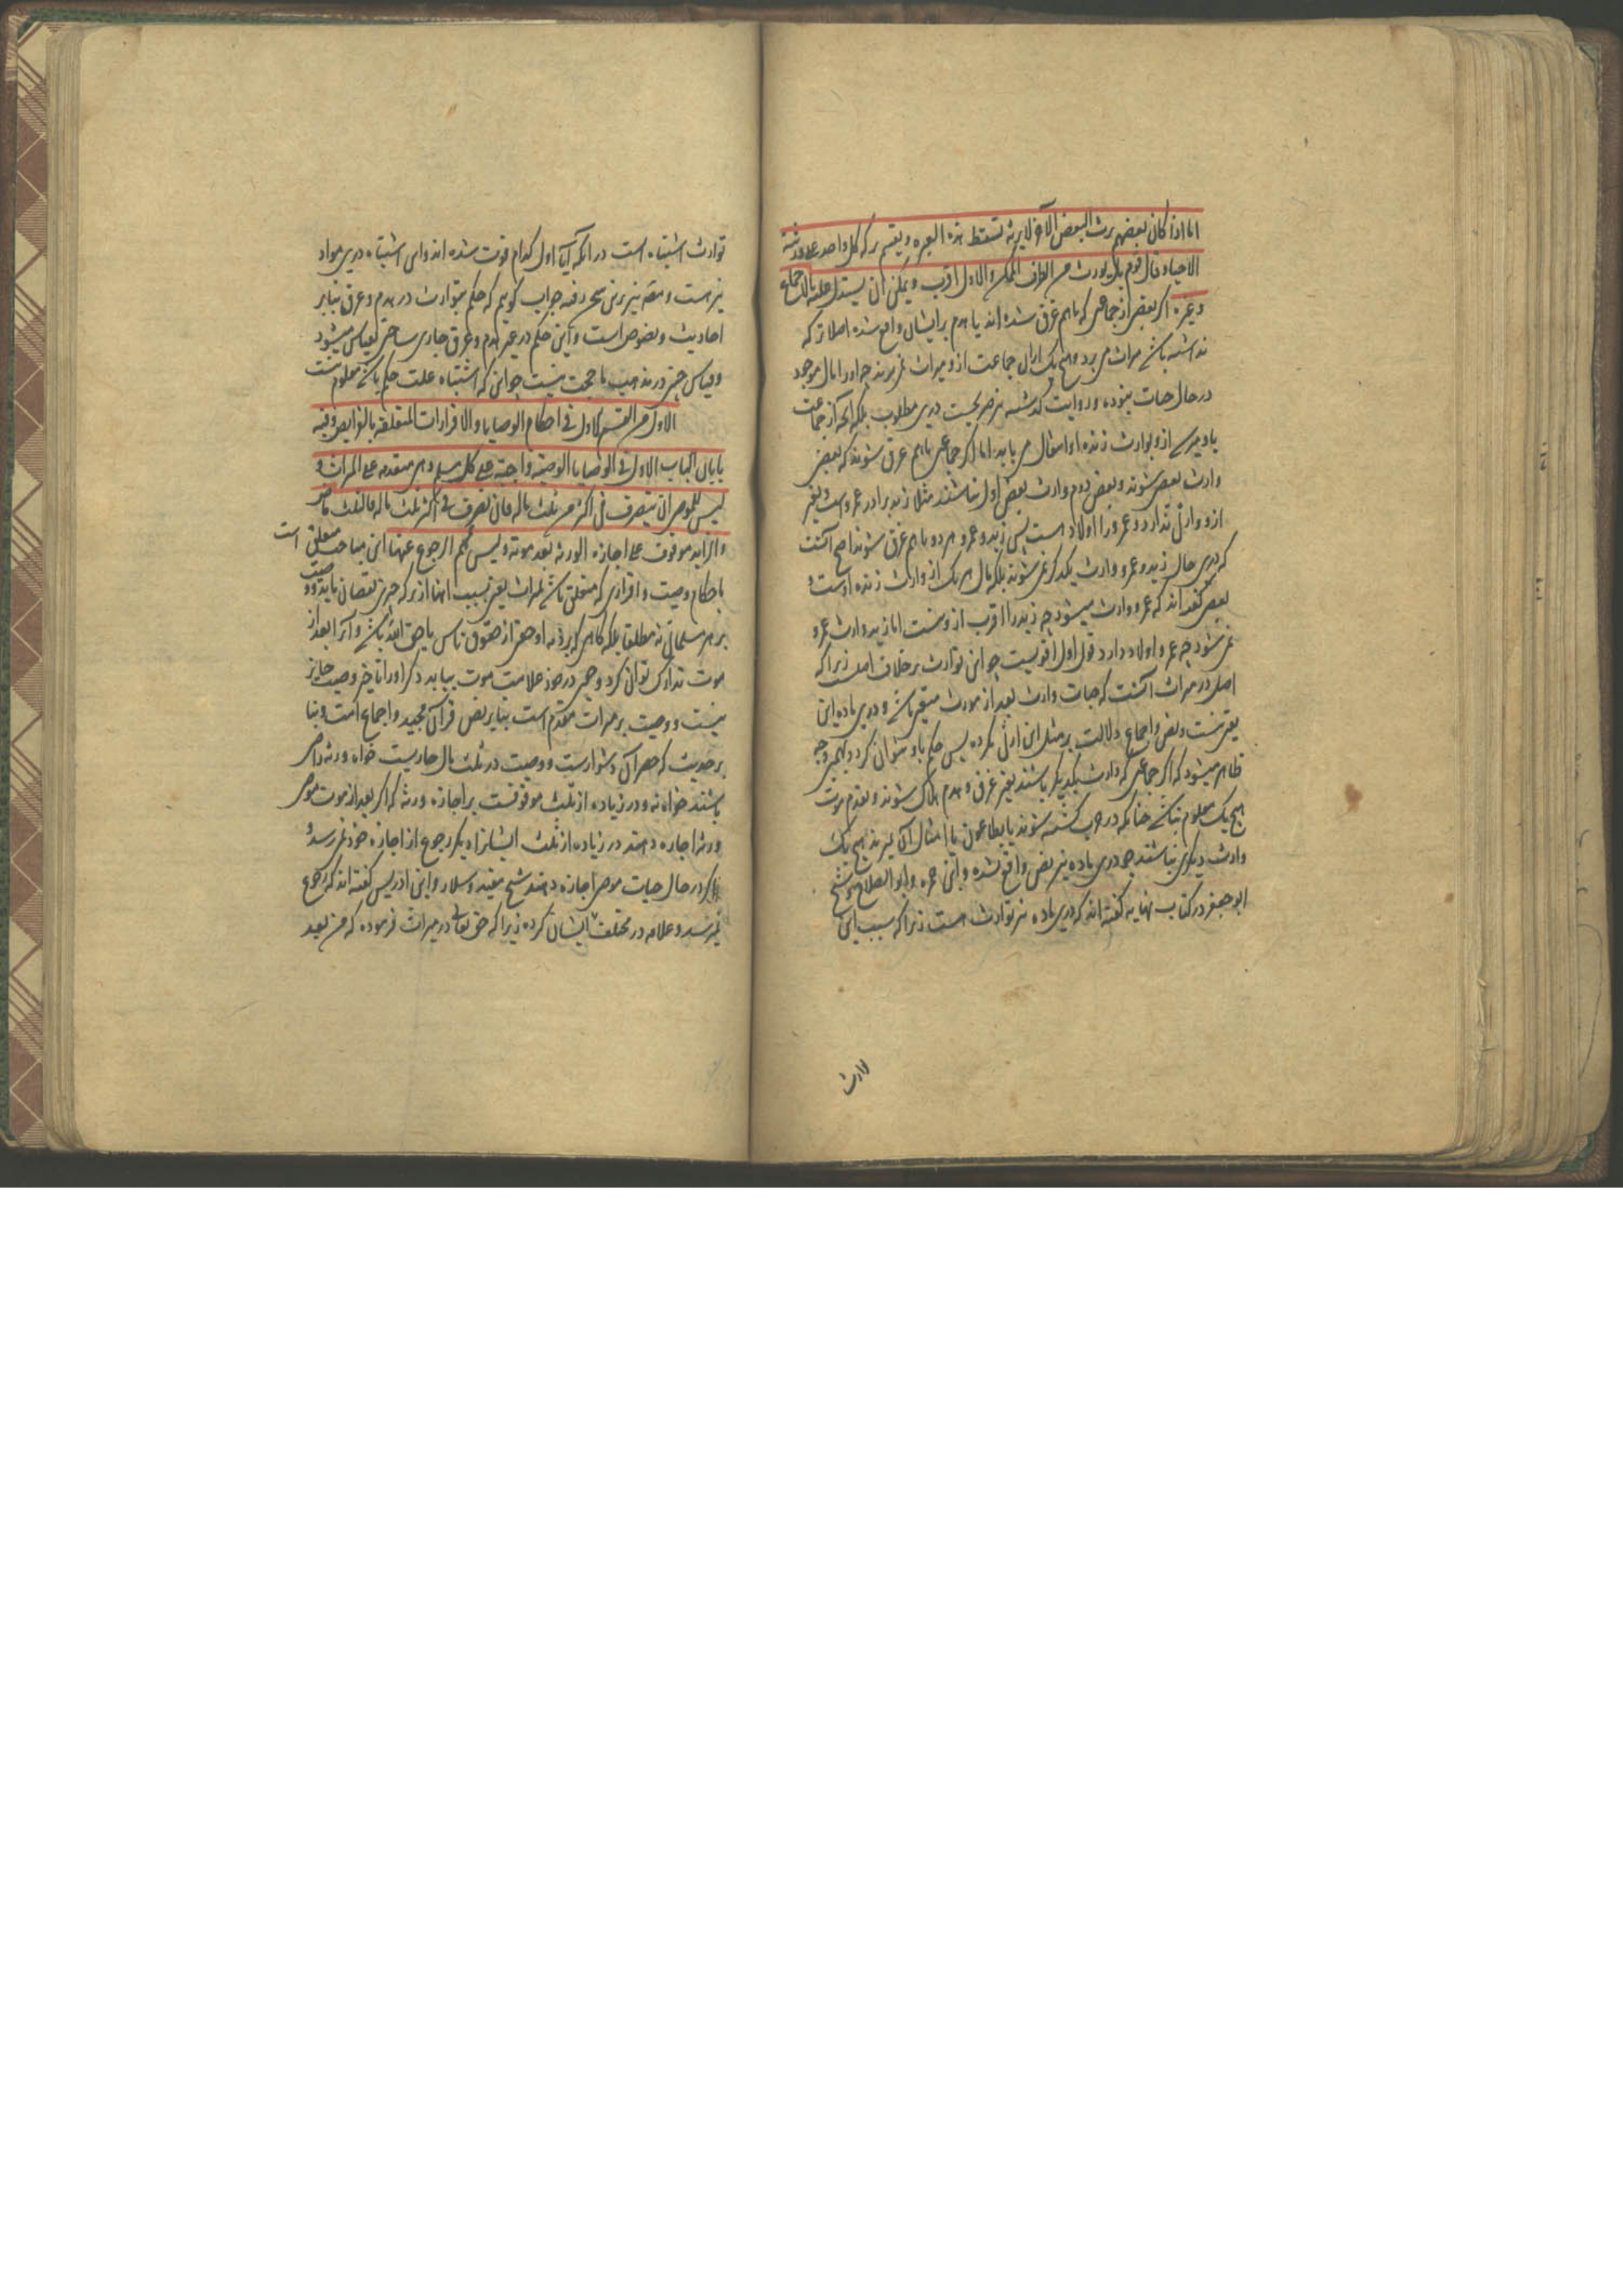 اما اذا کان بعضهم یرث البعض الآخر لا یرثه تسقط هذه العبره و یقسم ترکه کل واحد علی ورثته
الاحیاء و قال قوم بل یورث من الطرف الممکن و الاول اقرب و یمکن ان یستدل علیه بالاجماع
و غیره اگر بعضی از جماعتی که باهم غرق شده اند یا هدم بر ایشان واقع شده اصلا ترکه
نداشته باشد میراث می برد و هیچ یک از ان جماعت ازو میراث نمی برند چه او را مال موجود
در حال حیات نبوده و روایت گذشته نیز صریحست درین مطلوب بلکه آنچه از جماعت
یا دیگری ازو بوارث زنده او انتقال می یابد اما اگر جماعتی باهم غرق شوند که بعضی
وارث بعضی شوند و بعضی دوم وارث بعض اول نباشند مثلا زید برادر عمرو است و بغیر
ازو وارثی ندارد و عمرو را اولاد است پس زید و عمرو هر دو باهم غرق شوند اصح آنست
که درین حال زید و عمرو وارث یکدیگر نمی شوند بلکه مال هر یک از وارث زنده اوست و
بعضی گفته اند که عمرو وارث میشود چه زید را اقرب ازو نیست اما زید وارث عمرو
نمی شود چه عمرو اولاد دارد قول اول اقویست چه این توارث بر خلاف اصل است زیرا که
اصل در میراث آنست که حیات وارث بعد از مورث متیقن باشد و درین ماده این
یقین نیست و نص و اجماع دلالت بر مثل این ارث نکرده پس حکم باو نتوان کرد و بهمین وجه
ظاهر میشود که اگر جماعتی که وارث یکدیگر باشند بغیر غرق و هدم هلاک شوند و تقدم موت
هیچ یک معلوم نباشد چنانکه در حرب کشته شوند یا بطاعون یا امثال آن بمیرند هیچ یک
وارث دیگری نباشند چه درین ماده نیز نص واقع نشده و ابن حمزه و ابو الصلاح و شیخ
ابو جعفر در کتاب نهایه گفته اند که درین ماده نیز توارث است زیرا که سبب این
توارث
توارث اشتباه است در انکه آیا اول کدام فوت شده اند و این اشتباه درین مواد
نیز هست و محقق نیز برین نهج رفته جواب گوئیم که حکم بتوارث در هدم و غرق بنابر
احادیث و نصوص است و این حکم در غیر هدم و غرق جاری ساختن بقیاس میشود
و قیاس حتی در مذهب ما حجت نیست چه این که اشتباه علت حکم باشد معلوم نیست
الاول من القسم الاول فی احکام الوصایا و الاقرارات المتعلقه بالفرایض و فیه
بابان الباب الاول فی الوصایا الوصیة واجبة علی کل مسلم و هی متقدمه علی المیراث و
لیس للموصی ان یتصرف فی اکثر من ثلث ماله فان تصرف فی اکثر ثلث ماله فالثلث ماض
و الزاید موقوف علی اجازه الورثه بعد موته و لیس لهم الرجوع عنها این مباحث متعلق است
باحکام وصیت و اقراری که متعلق باشد بمیراث یعنی بسبب انها از ترکه چیزی نقصان یابد و وصیت
بر هر مسلمانی نه مطلقا بلکه گاهی که بر ذمه او حقی از حقوق ناس یا حق الله باشد و آنرا بعد از
موت تدارک توان کرد و چون در خود علامت موت بیابد دیگر او را تاخیر وصیت جایز
نیست و وصیت بر میراث مقدم است بنابر نص قرآن مجید و اجماع امت و بنا
بر حدیث که حصر آن دشوارست و وصیت در ثلث مال جاریست خواه ورثه راضی
باشند خواه نه و در زیاده از ثلث موقوفست بر اجازه ورثه که اگر بعد از موت موصی
ورثه اجازه دهند در زیاده از ثلث ایشانرا دیگر رجوع از اجازه خود نمی رسد و
اگر در حال حیات موصی اجازه دهند شیخ مفید و سلار و ابن ادریس گفته اند که رجوع
نمیرسد و علامه در مختلف ایشان کرده زیرا که حق تعالی در میراث فرموده که من بعد